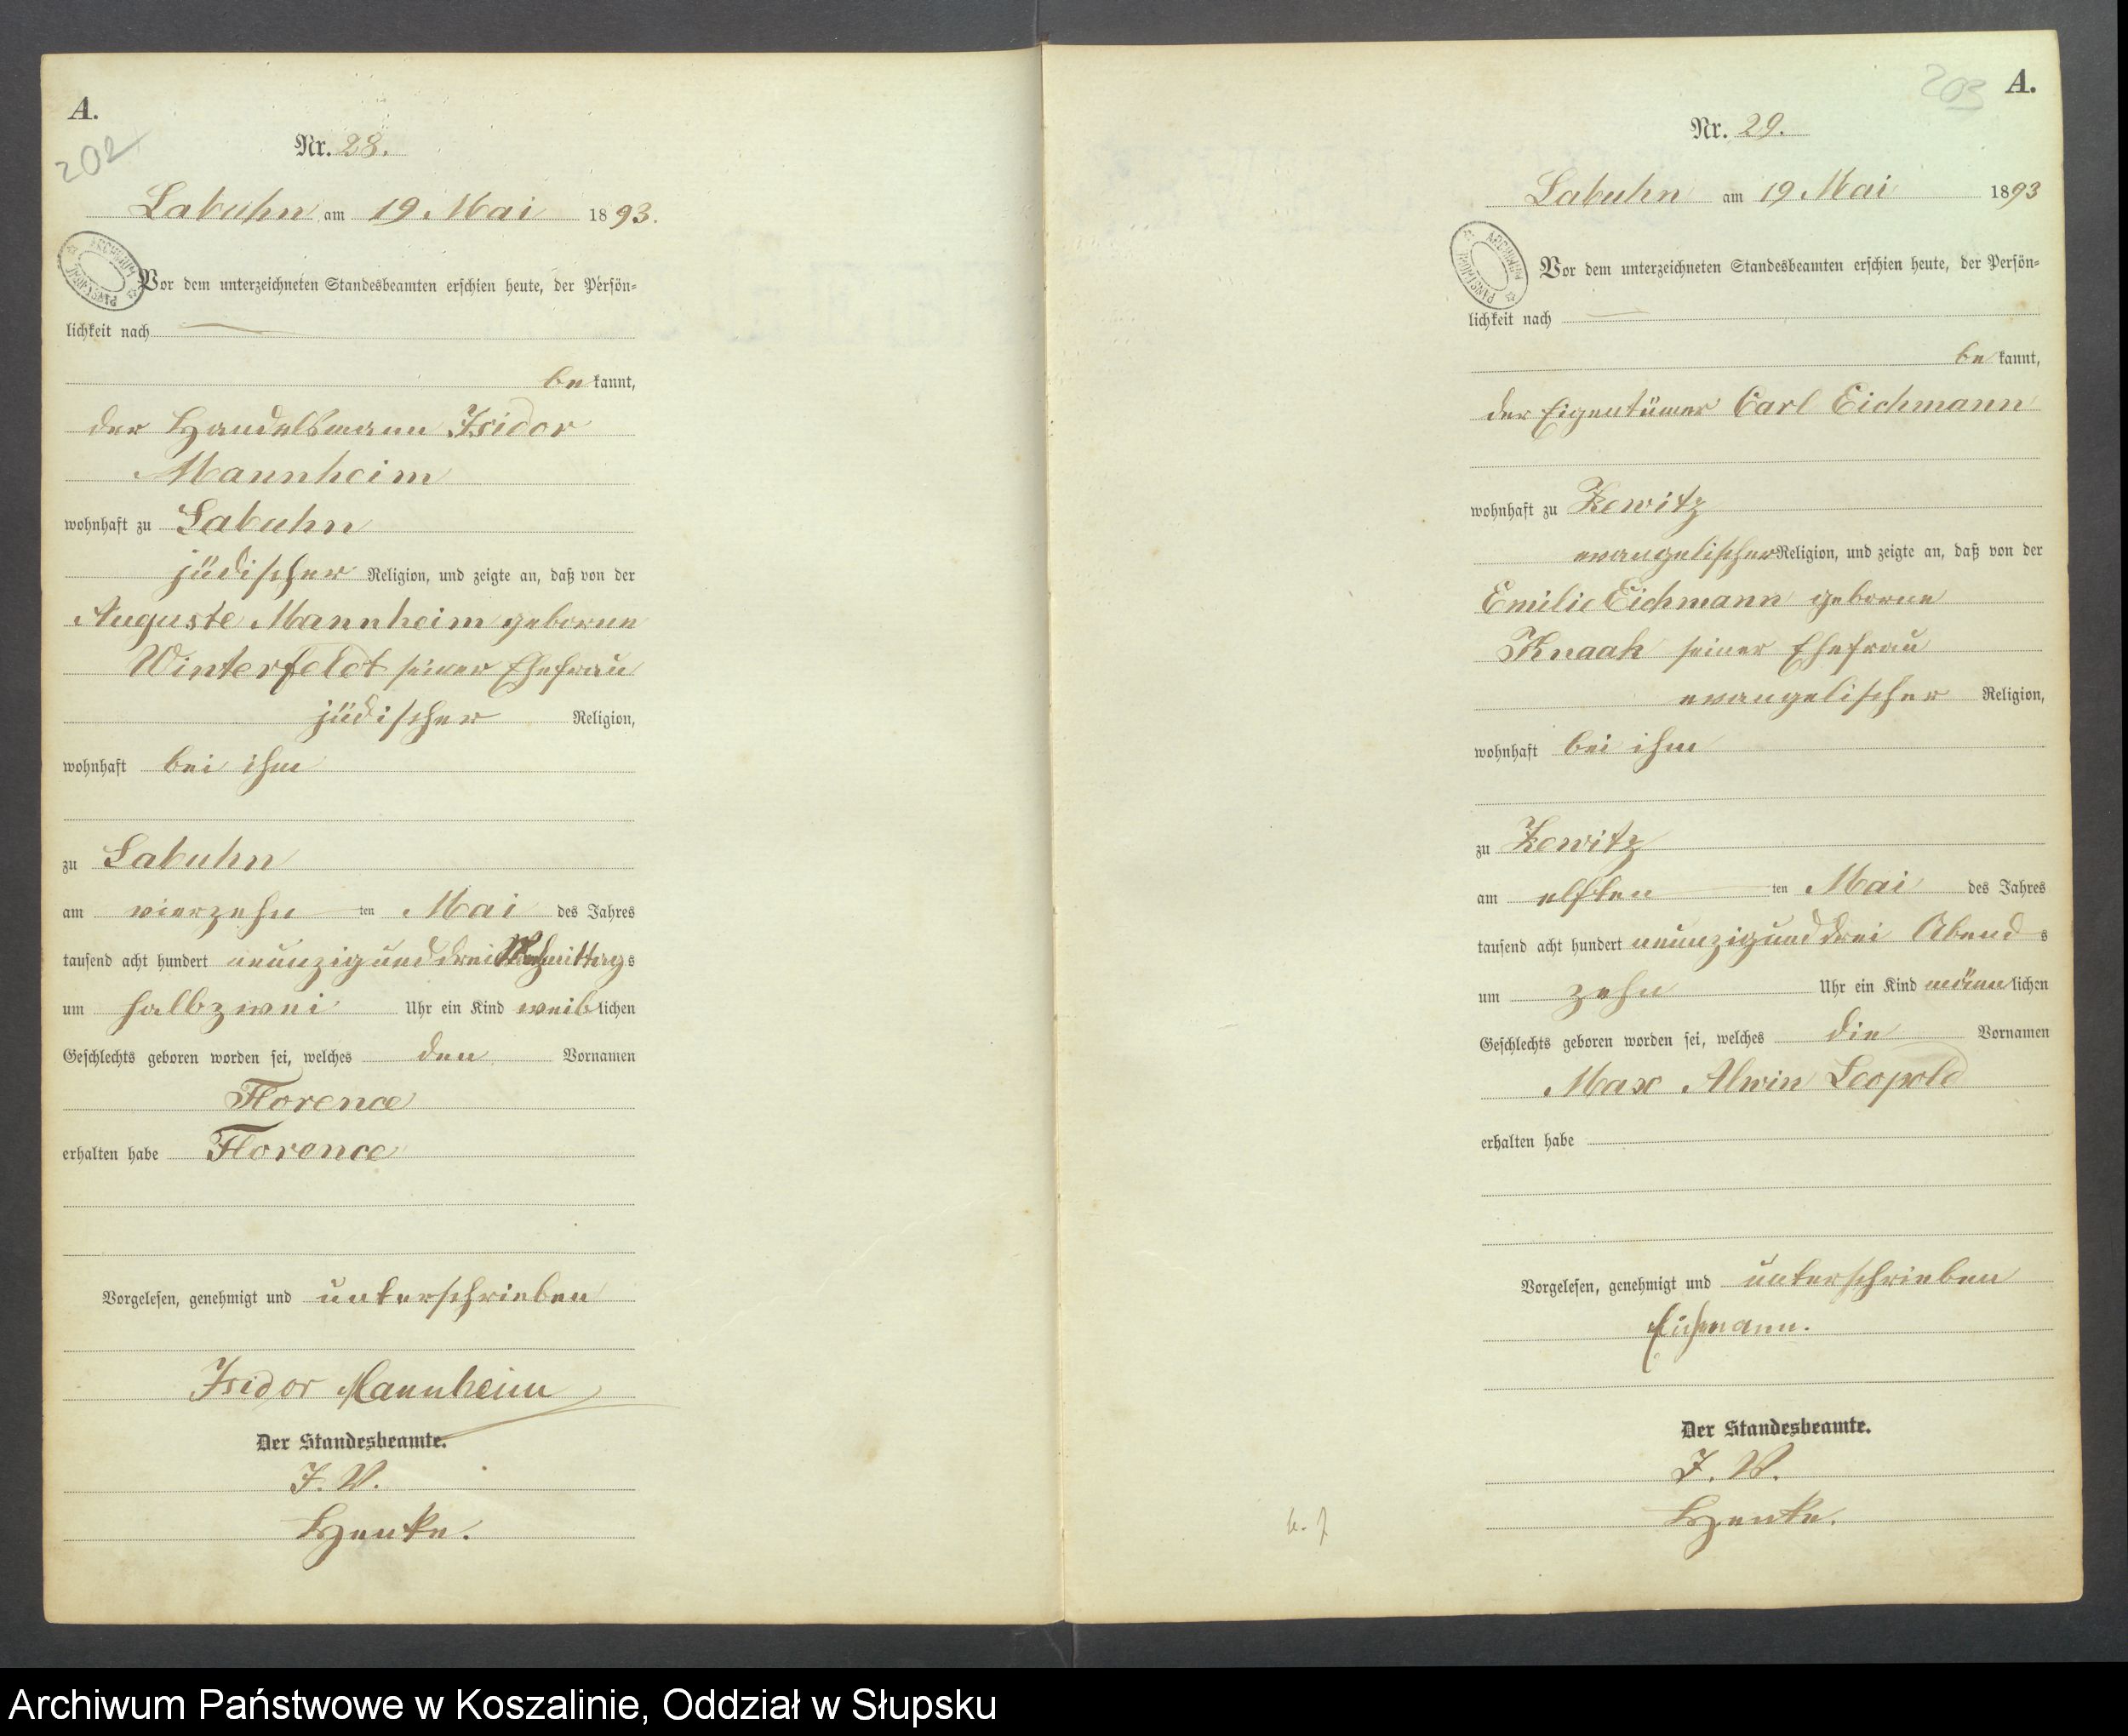 A.
202
Nr. 28.
Labuhn am 19 Mai 1893.
Vor dem unterzeichneten Standesbeamten erschien heute, der Persön-
lichkeit nach
be kannt,
der Handelsmann Isidor
Mannheim
wohnhaft zu Labuhn
jüdischer Religion, und zeigte an, daß von der
Auguste Mannheim geborne
Winterfeldt seiner Ehefrau
jüdischer Religion,
wohnhaft bei ihm
zu Labuhn
am vierzehn ten Mai des Jahres
tausend acht hundert neunzig und drei Nachmittags
um halb zwei Uhr ein Kind weiblichen
Geschlechts geboren worden sei, welches den Vornamen
Florence
erhalten habe Florence
Vorgelesen, genehmigt und unterschrieben
Isidor Mannheim
Der Standesbeamte.
I. V.
Henke.
203
A.
Nr. 29.
Labuhn am 19 Mai 1893
Vor dem unterzeichneten Standesbeamten erschien heute, der Persön-
lichkeit nach
be kannt,
der Eigentümer Carl Eichmann
wohnhaft zu Zewitz
evangelischer Religion, und zeigte an, daß von der
Emilie Eichmann geborne
Knaak seiner Ehefrau
evangelischer Religion,
wohnhaft bei ihm
zu Zewitz
am elften ten Mai des Jahres
tausend acht hundert neunzig und drei Abend s
um zehn Uhr ein Kind männlichen
Geschlechts geboren worden sei, welches die Vornamen
Max Alwin Leopold
erhalten habe
Vorgelesen, genehmigt und unterschrieben
Eichmann.
Der Standesbeamte.
I. V.
Henke.
Archiwum Państwowe w Koszalinie, Oddział w Słupsku